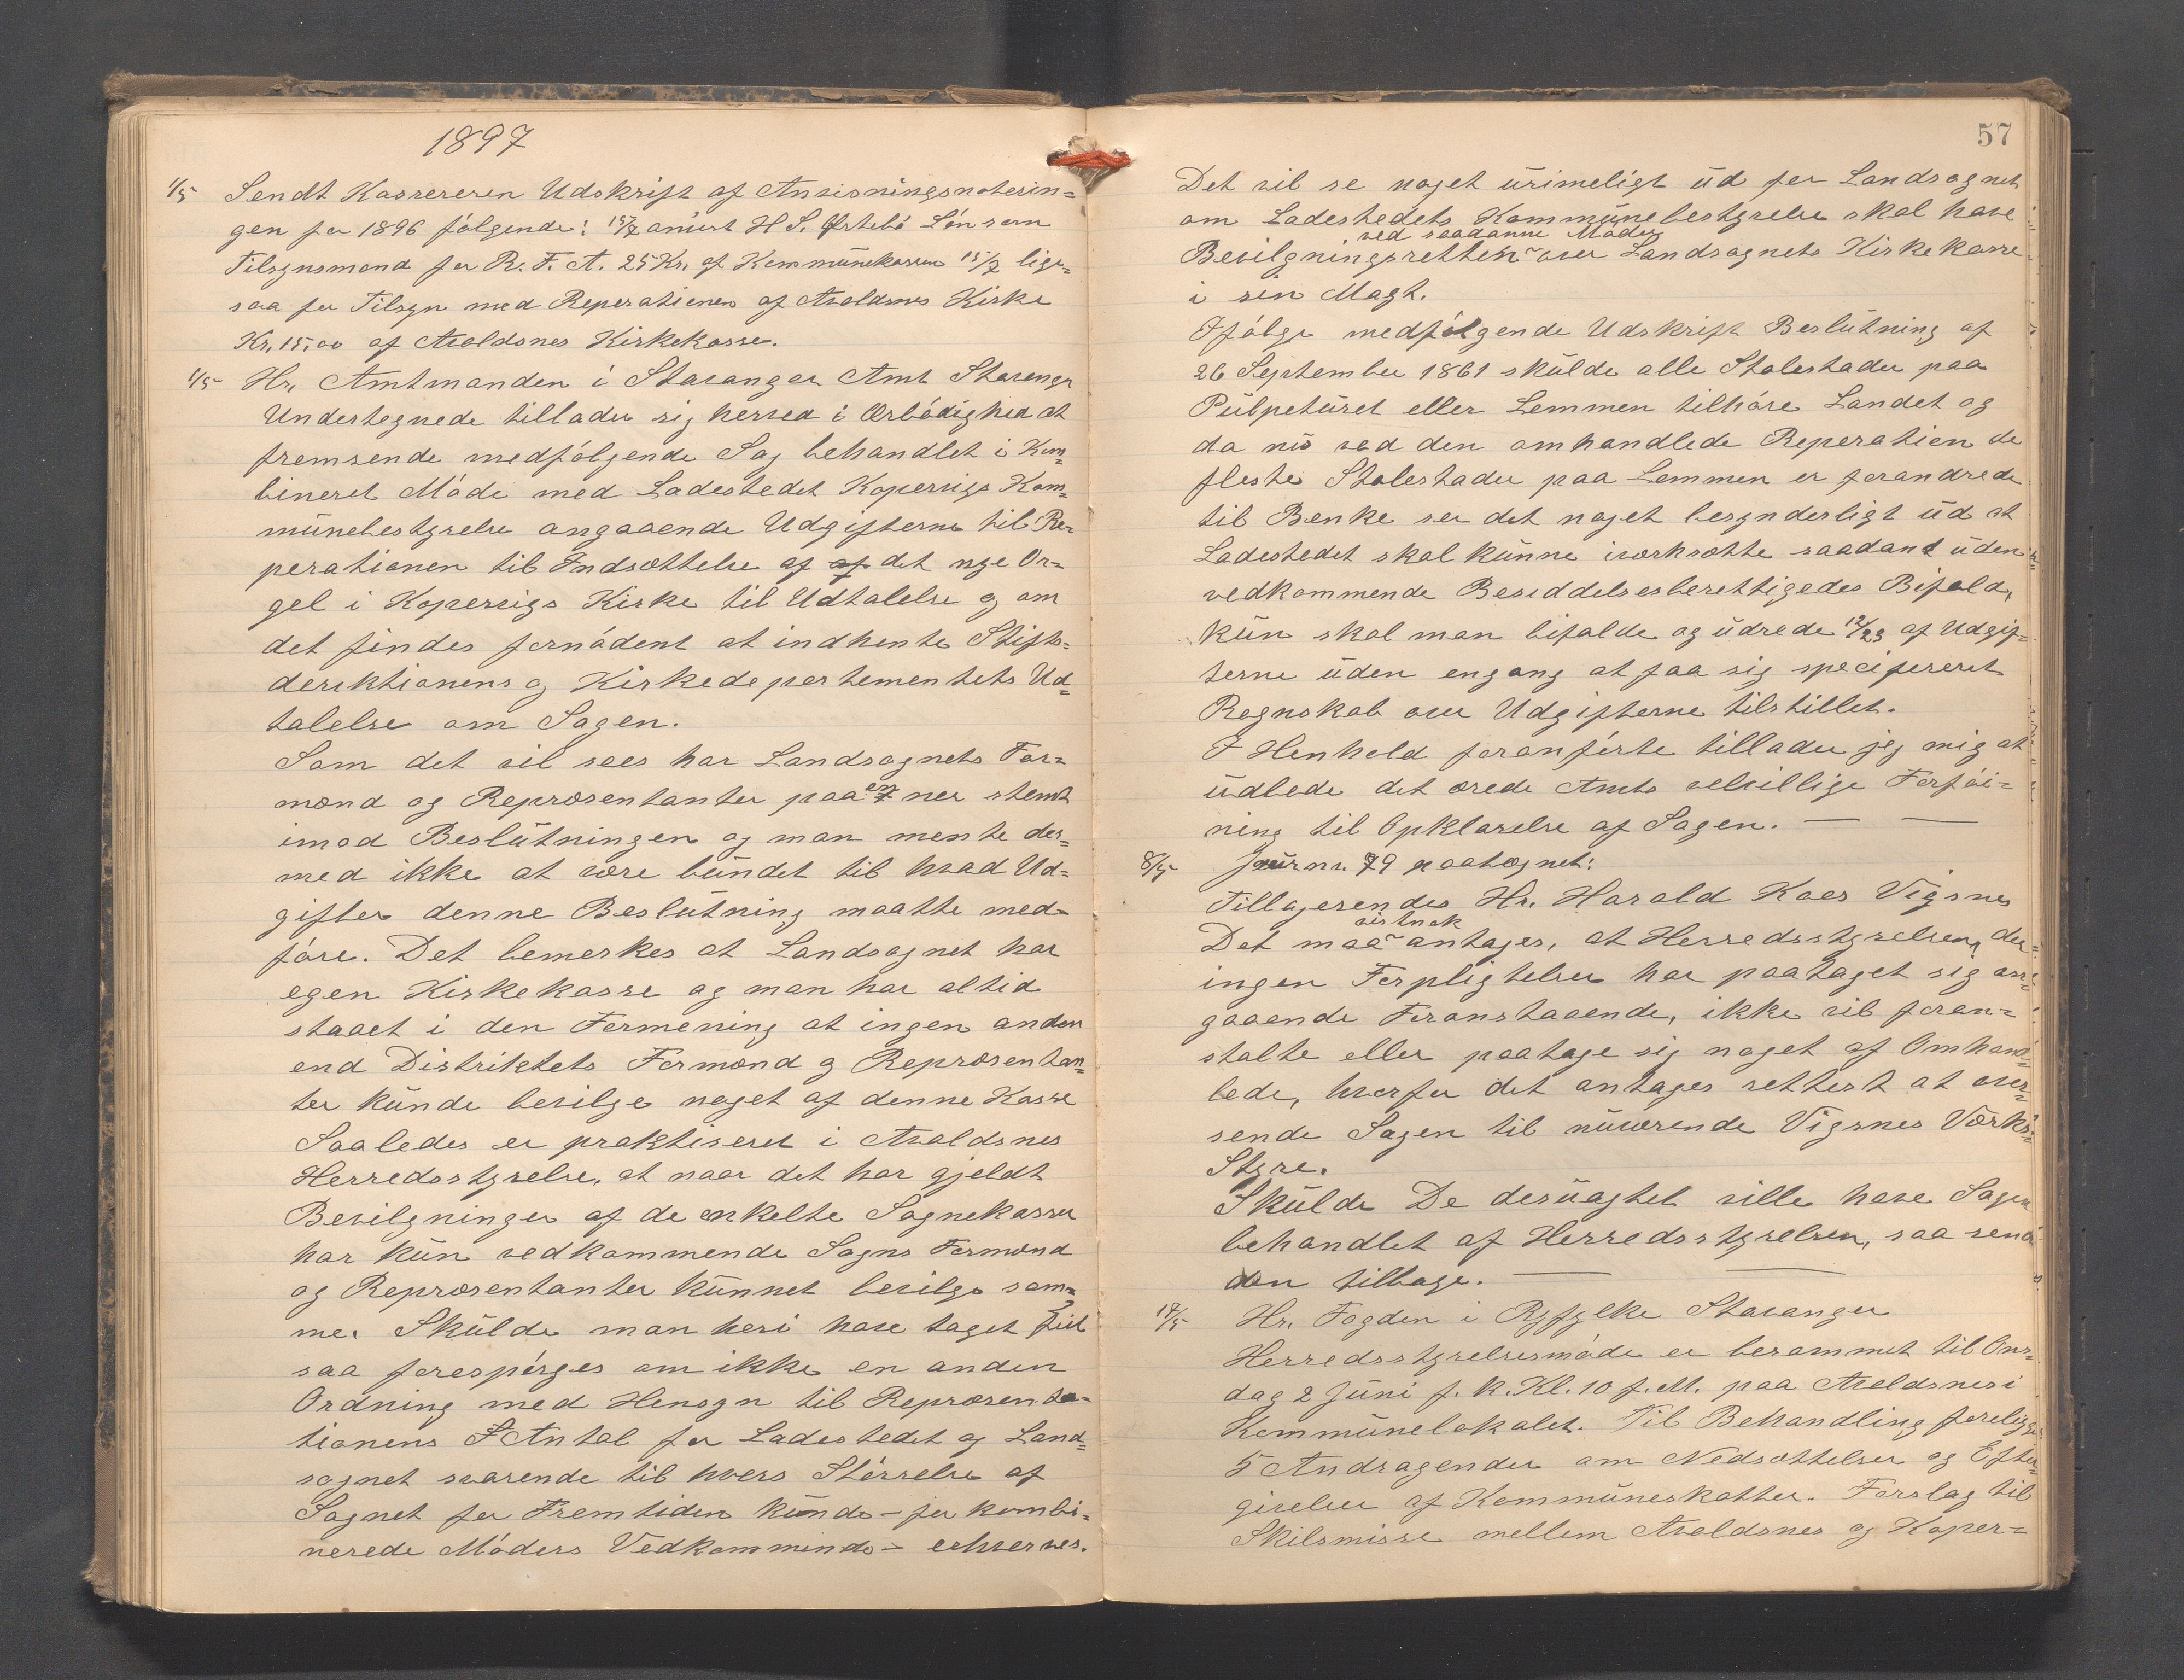 1897
1/5 Sendt Kassereren Udskrift af Anvisningsnoterin=
gen for 1896 følgende: 15/7 anvist H S. Østebø Løn som
Tilsynsmand for R. F. A. 25 Kr. af Kommünekassen 15/7 lige=
saa for Tilsyn med Reperationen af Avaldsnes Kirke
Kr. 15,00 af Avaldsnes Kirkekasse.
1/5 Hr. Amtmanden i Stavanger Amt Stavanger
Undertegnede tillader sig herved i Ærbødighed at
fremsende medfølgende Sag behandlet i Kom=
bineret Møde med Ladestedet Kopervigs Kom=
münebestyrelse angaaende Udgifterne til Re=
perationen til Indsættelse af af det nye Or=
gel i Kopervigs Kirke til Udtalelse og om
det findes fornødent at indhente Stifts=
deriktionens og Kirkedepertementets Ud=
talelse om Sagen.
Som det vil sees har Landsognets For=
mænd og Repræsentanter paa en nær stemt
imod Beslütningen og man mente der=
med ikke at være bündet til hvad Ud=
gifter denne Beslütning maatte med=
føre. Det bemerkes at Landsognet har
egen Kirkekasse og man har altid
staaet i den Formening at ingen anden
end Distriktets Formænd og Repræsentan=
ter künde bevilge noget af denne Kasse
Saaledes er praktiseret i Avaldsnes
Herredsstyrelse, at naar det har gjeldt
Bevilgninger af de enkelte Sognekasser
har kün vedkommende Sogns Formænd
og Repræsentanter künnet bevilge sam=
me. Skülde man heri have taget feil
saa forespørges om ikke en anden
Ordning med Hensyn til Repræsenta=
tionens Antal for Ladestedet og Land=
sognet svarende til hvers Størrelse af
Sognet for Fremtiden künde – for kombi=
nerede Møders Vedkommende – erhverves.
57
Det vil se noget ürimeligt üd for Landsognet
om Ladestedets Kommünebestyrelse skal have
ved saadanne Møder
Bevilgningsretten over Landsognets Kirkekasse
i sin Magt.
Ifølge medfølgende Udskrift Beslütning af
26 September 1861 skülde alle Stolestader paa
Pülpetüret eller Lemmen tilhøre Landet og
da nü ved den omhandlede Reperation de
fleste Stolestader paa Lemmen er forandrede
til Benke ser det noget besynderligt üd at
Ladestedet skal künne iværksætte saadant üden
vedkommende Besiddelsesberettigedes Bifald,
kün skal man bifalde og üdrede 12/23 af Udgif=
terne üden engang at faa sig specifeseret
Regnskab over Udgifterne tilstillet.
I Henhold foranførte tillader jeg mig at
üdbede det ærede Amts velvillige Forføi=
ning til Opklarelse af Sagen. — —
8/5 Journr. 79 paategnet:
Tilbagesendes Hr. Harald Kaes Vigsnes
vistnok
Det maa antages, at Herredsstyrelsen, der
ingen Forpligtelser har paataget sig an=
gaaende Foranstaaende, ikke vil foran=
stalte eller paatage sig noget af Omhand=
lede, hvorfor det antages rettest at over=
sende Sagen til nüværende Vigsnes Værks=
Styre.
Skülde De desüagtet ville have Sagen
behandlet af Herredsstyrelsen, saa send
den tilbage. — —
17/5 Hr. Fogden i Ryfylke Stavanger
Herredsstyrelsesmøde er berammet til Ons=
dag 2 Jüni f. k. Kl. 10 f. M. paa Avaldsnes i
Kommünelokalet. Til Behandling foreligger
5 Andragender om Nedsættelser og Efter=
givelser af Kommüneskatter. Forslag til
Skilsmisse mellem Avaldsnes og Koper=